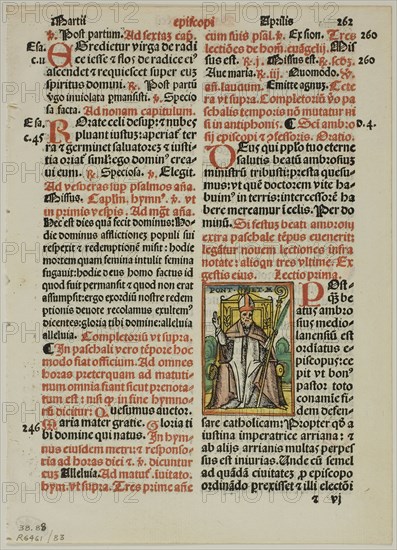 Martii
episcopi
Aprilis
262
℣. Post partum. Ad sextā cap̄.
Esa. c.11
EGredietur virga de radice iesse & flos de radice ei9
ascendet & requiescet super eum
spiritus domini. ℟. Post partū
v̄go inuiolata p̄mansisti. ℣. Specio
sa facta. Ad nonam capitulum.
Esa. c.45
ROrate celi desup: & nubes
pluant iustum: aperiat̄ ter
ra & germinet saluatorē: & iusti
tia oriat̄ simul: ego dominꝰ crea
ui eum. ℟. Speciosa. ℣. Elegit.
Ad vesperas sup psalmos añā.
Missus. Capl̄m, hymnꝰ. ℣. vt
in primis vesp̄is. Ad mḡt añā.
HEc est dies quā fecit dominus: ho
die dominus afflictionē populi sui
respexit & redemptionē misit: hodie
mortem quam femina intulit femina
fugauit: hodie deus homo factus id
quod fuit permansit & quod non erat
assumpsit: ergo exordiū nostre redem
ptionis deuote recolamus exultem9
dicentes: gloria tibi domine: alleluia
alleluia. Completoriū vt supra.
¶ In paschali vero tēpore hoc
modo fiat officium. Ad omnes
horas preterquam ad matuti
num omnia fiant sicut prenota
tum est: nisi ꝙ in fine hymno
rū dicitur: Quesumus auctor.
246
Maria mater gratie. Gloria ti
bi domine qui natus. In hym
nus eiusdem metri: & responso
ria ad horas diei & ℣. dicuntur
cū Alleluia. Ad matuṫ. īuitato.
hym. vt supra. Tres prime añe
cum suis psal. ℣. Ex sion. Tres
lectiōes de hom. euāgelij. Mis
260
sus est. ℟. j. Missus est. & scd̄3.
260
Aue maria. ℟. iij. Quomodo.
añ. laudum. Emitte agnum. &
cetera vt supra. Completoriū vo pa
schalis temporis nō mutatur ni
si in antiphonis. ¶ Sc̄i ambro
D.4.
sij episcopi & cōfessoris. Oratio.
DEus qui pplo tuo eterne
salutis beatū ambrosium
ministrū tribuisti: presta quesu
mus: vt quē doctorem vite ha
buim9 in terris: intercessorē ha
bere mereamur ī celis. Per do
minū. Si festū beati ambrosij
extra paschale tēpus euenerit:
legāṫ nouem lectiones infra
notate: alioqn̄ tres vltime. Ex
gestis eius. Lectio prima.
POst-
q̄3 be
atus am
brosius medio
lanensiū est
ordiatus e
piscopus: ce
pit vt bon9
pastor toto
conamīe fi
dem defen
sare catholicam: Propter qō a
iustina imperatrice arriana: &
ab alijs arrianis multas perpes
sus est iniurias. Unde cū semel
ad quādā ciuitatē, ꝑ episcopo
ordinādo prexisset & illi electōi
& vj
38.88
R6461/83